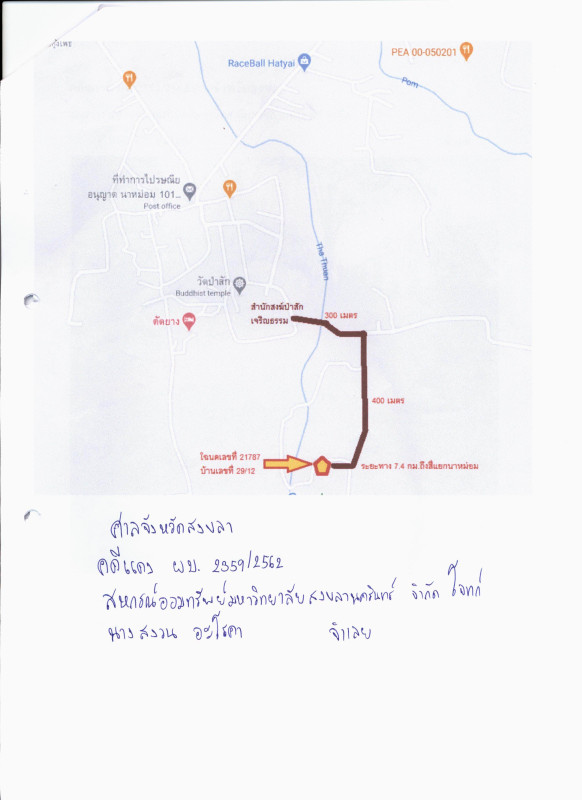 กุ้งเพร
RaceBall Hatyai
PEA 00-050201
Pom
ที่ทำการไปรษณีย
อนุญาต นาหม่อม 101...
Post office
The Thiam
วัดป่าสัก
Buddhist temple
สำนักสงฆ์ป่าสัก
เจริญธรรม
300 เมตร
ตัดยาง
400 เมตร
โฉนดเลขที่ 21787
บ้านเลขที่ 29/12
ระยะทาง 7.4 กม.ถึงสี่แยกนาหม่อม
ศาลจังหวัดสงขลา
คดีแดง ผบ. 2359/2562
สหกรณ์ออมทรัพย์มหาวิทยาลัยสงขลานครินทร์ จำกัด โจทก์
นางสงวน อะโรคา จำเลย